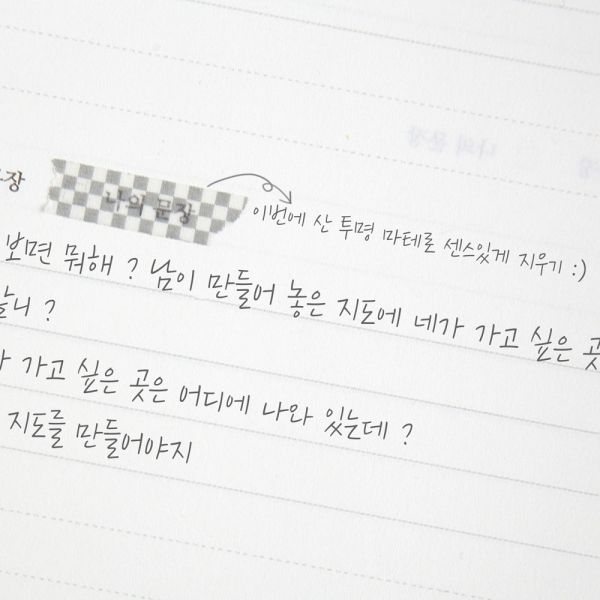 나의 문장
이번에 산 투명 마테로 센스있게 지우기 :)
보면 뭐해 ? 남이 만들어 놓은 지도에 네가 가고 싶은 곳
?
가고 싶은 곳은 어디에 나와 있는데 ?
지도를 만들어야지